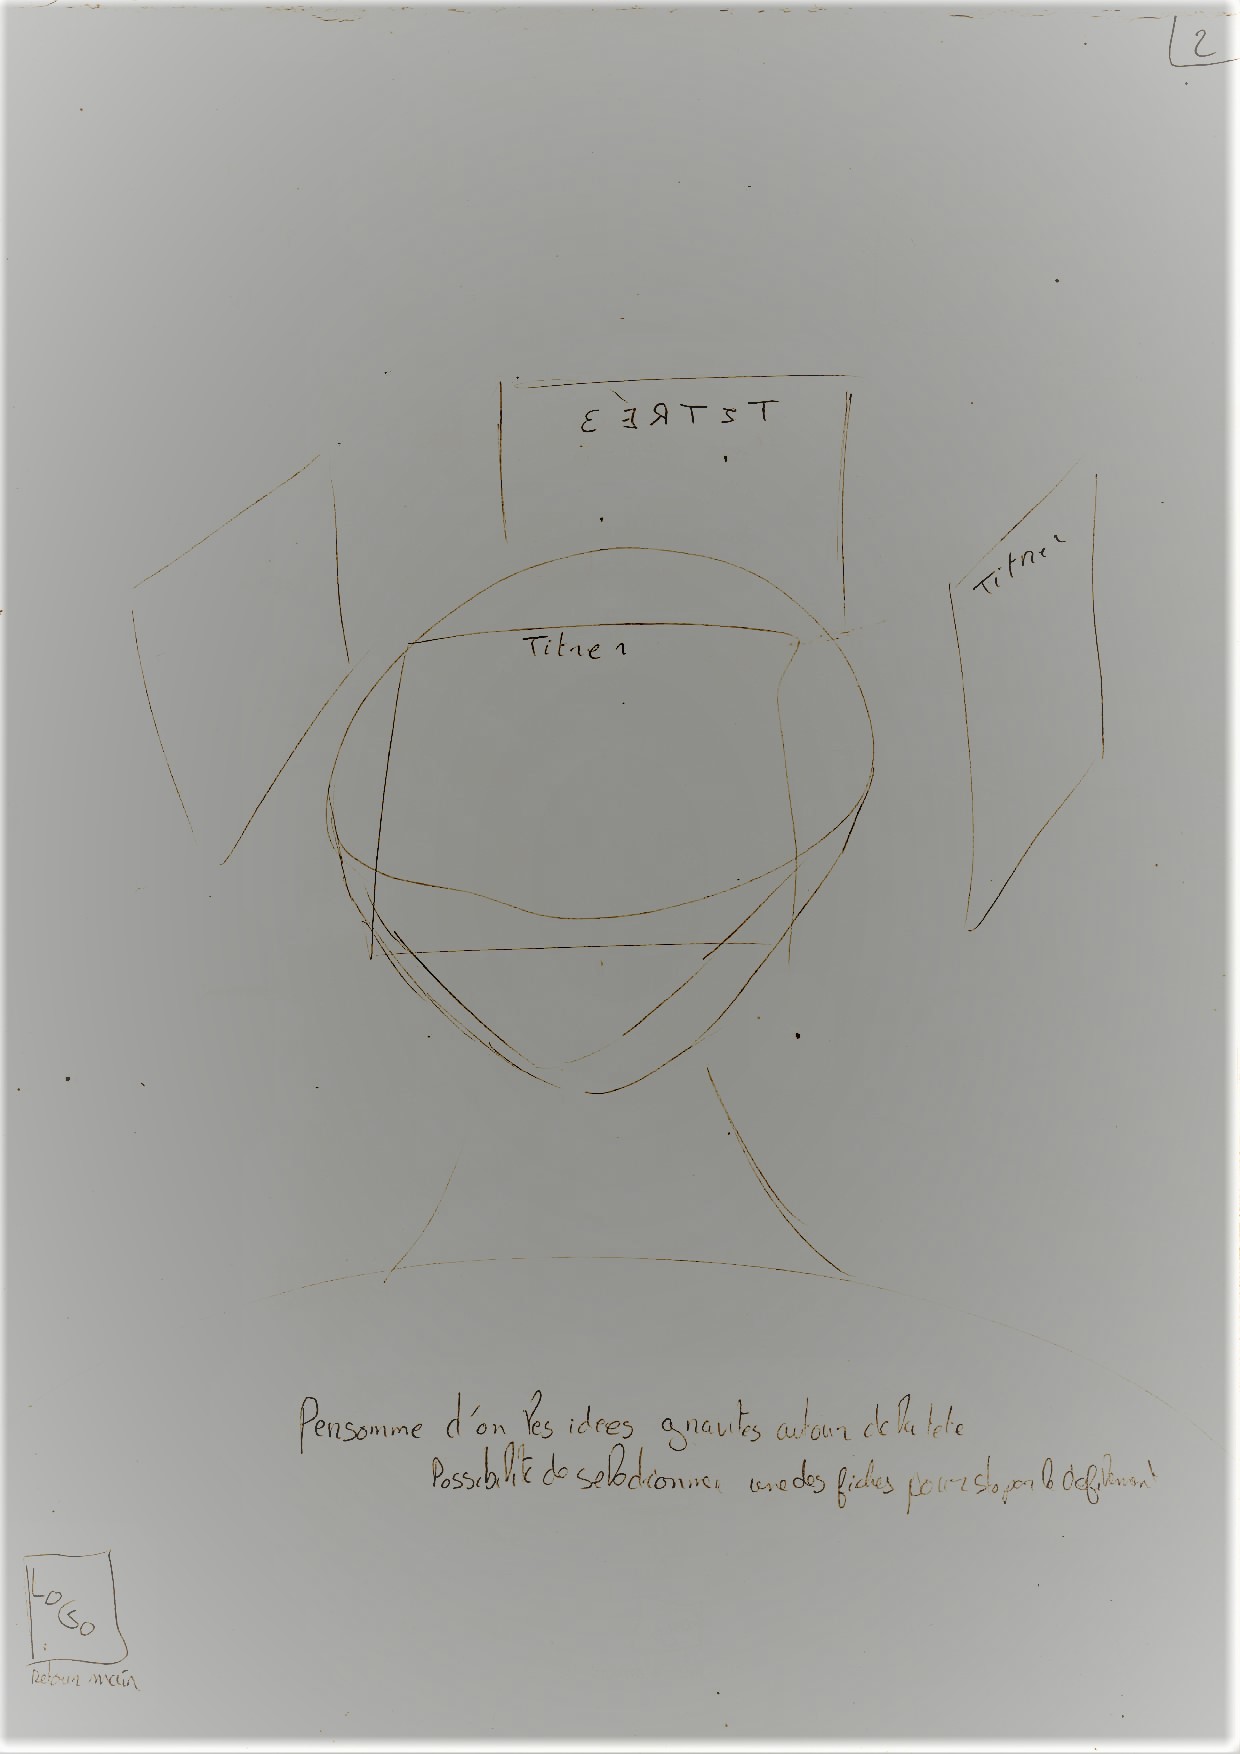 2
TITRE 3
Titre 2
Titre 1
Personne d'on les idees gravites autour de la tete
Possibilité de selectionner une des fiches pour stoper le defilement
LOGO
Retour main